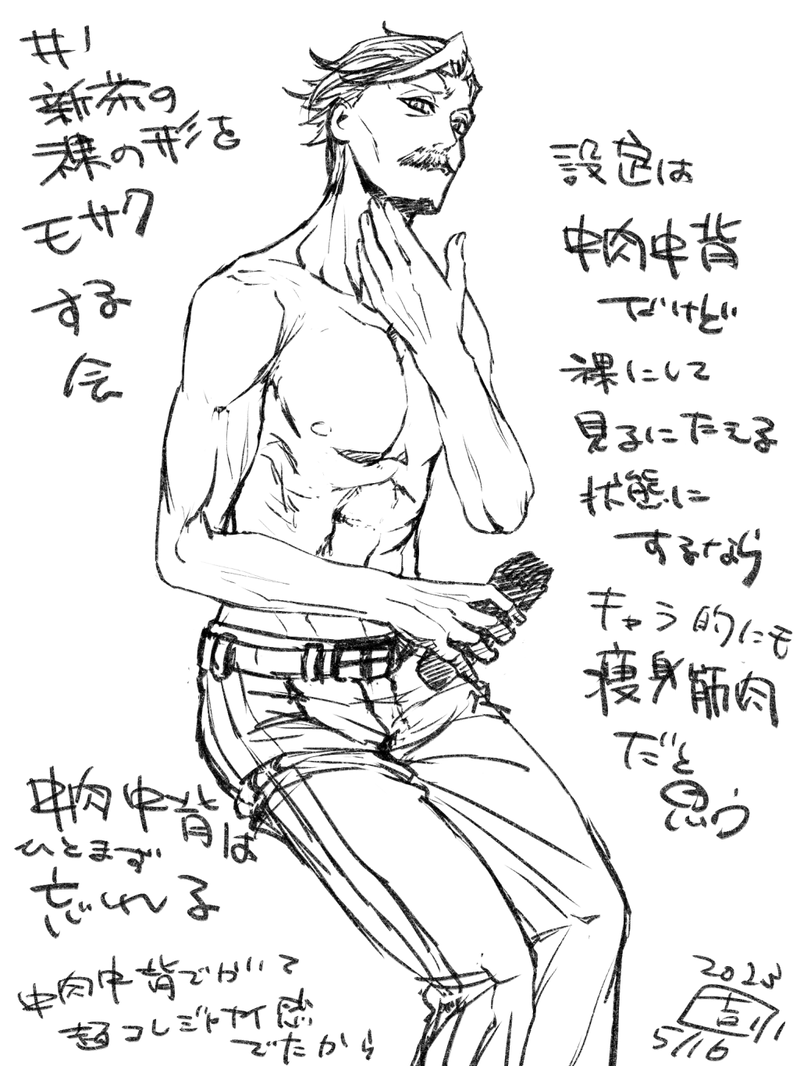 #1
新茶の
裸の形を
モサク
する
会
設定は
中肉中背
だけど
裸にして
見るにたえる
状態に
するなら
キャラ的にも
痩身筋肉
だと
思う
中肉中背は
ひとまず
忘れる
中肉中背でかいて
超コレジャナイ感
でたから
2023
5/16